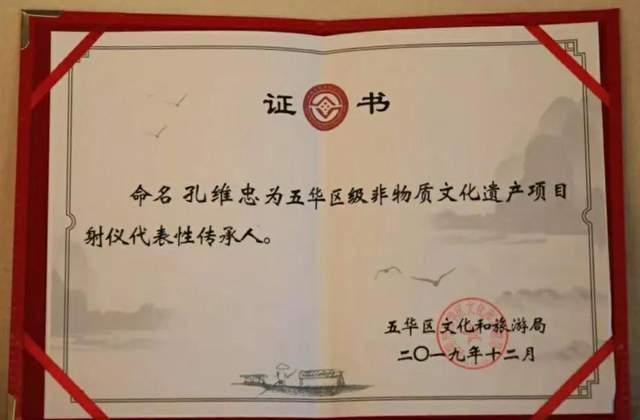 证书
命名孔维忠为五华区级非物质文化遗产项目
射仪代表性传承人。
五华区文化和旅游局
二〇一九年十二月